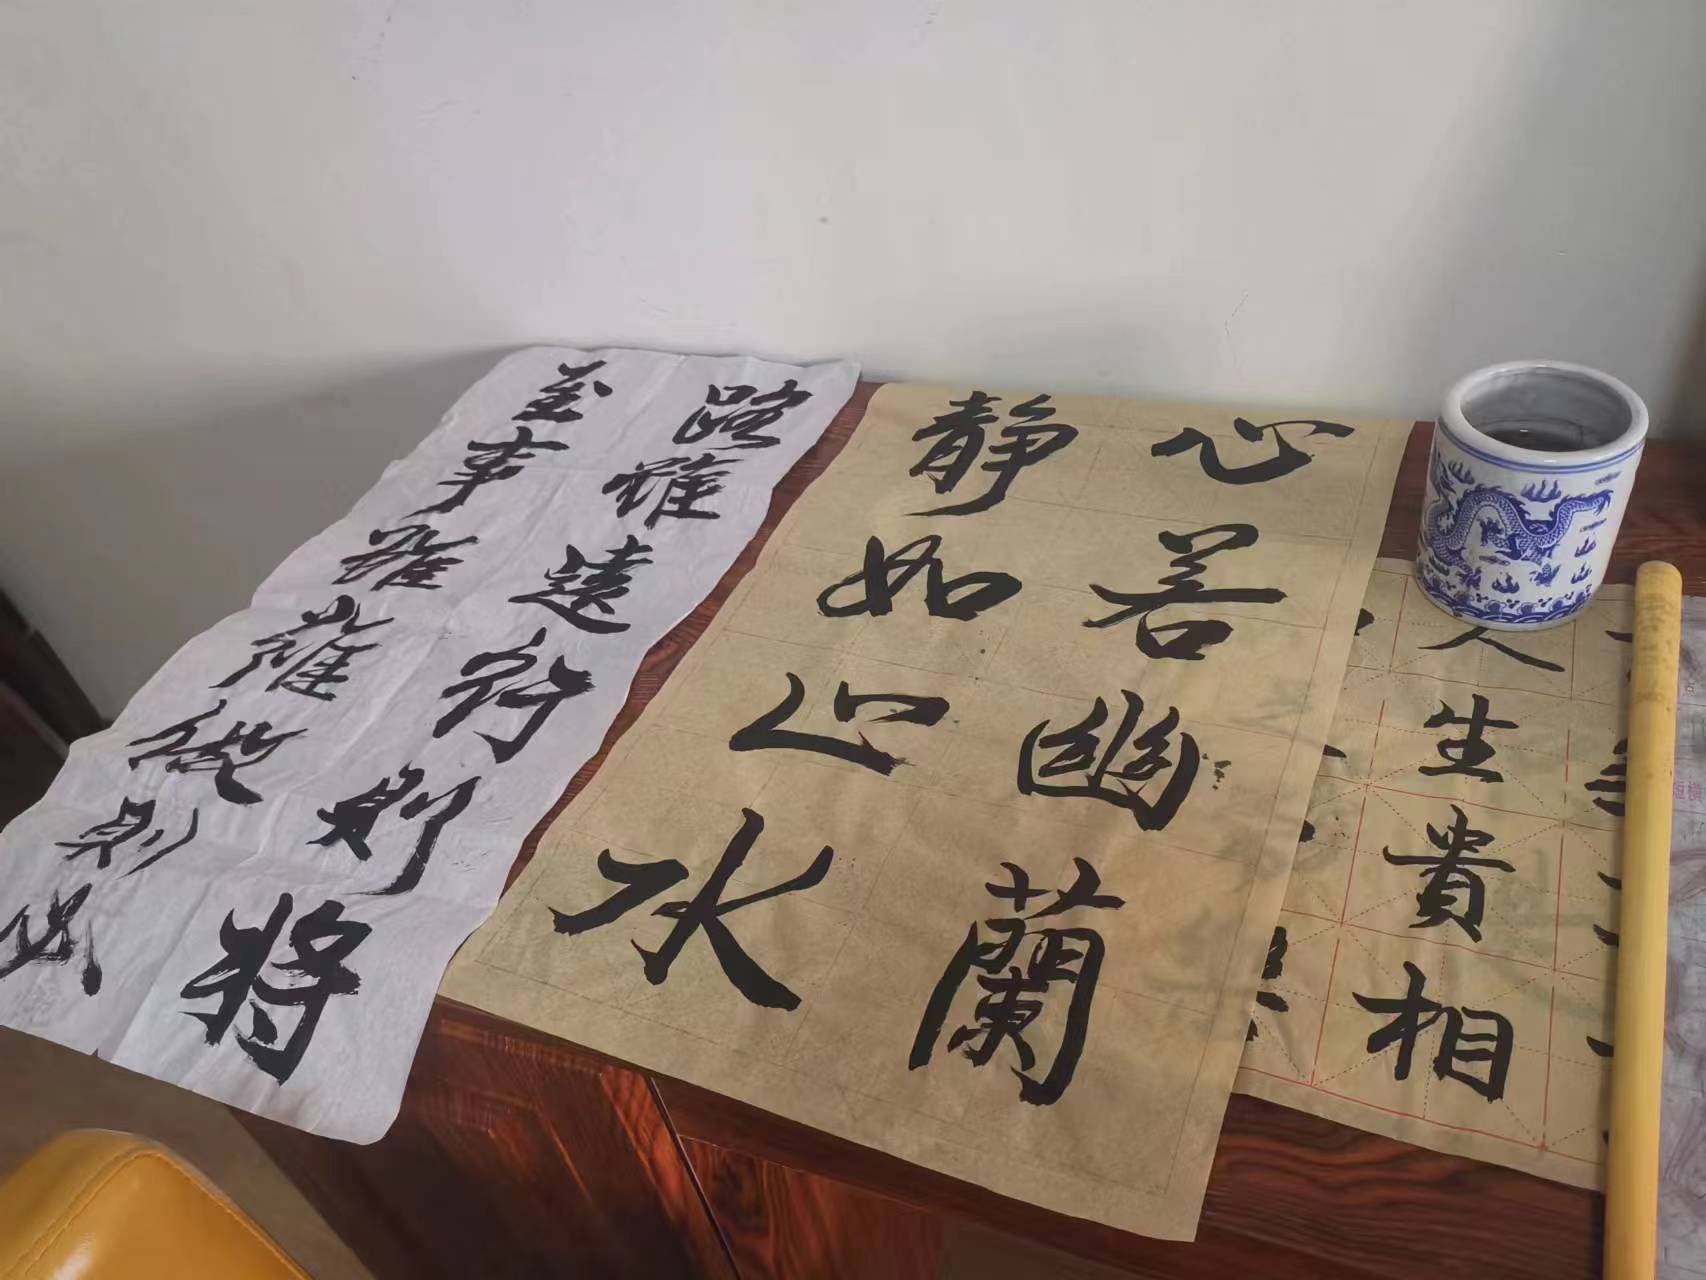 人生貴相
心若幽蘭
静如止水
路雖遠行則將
至事雖難做則必